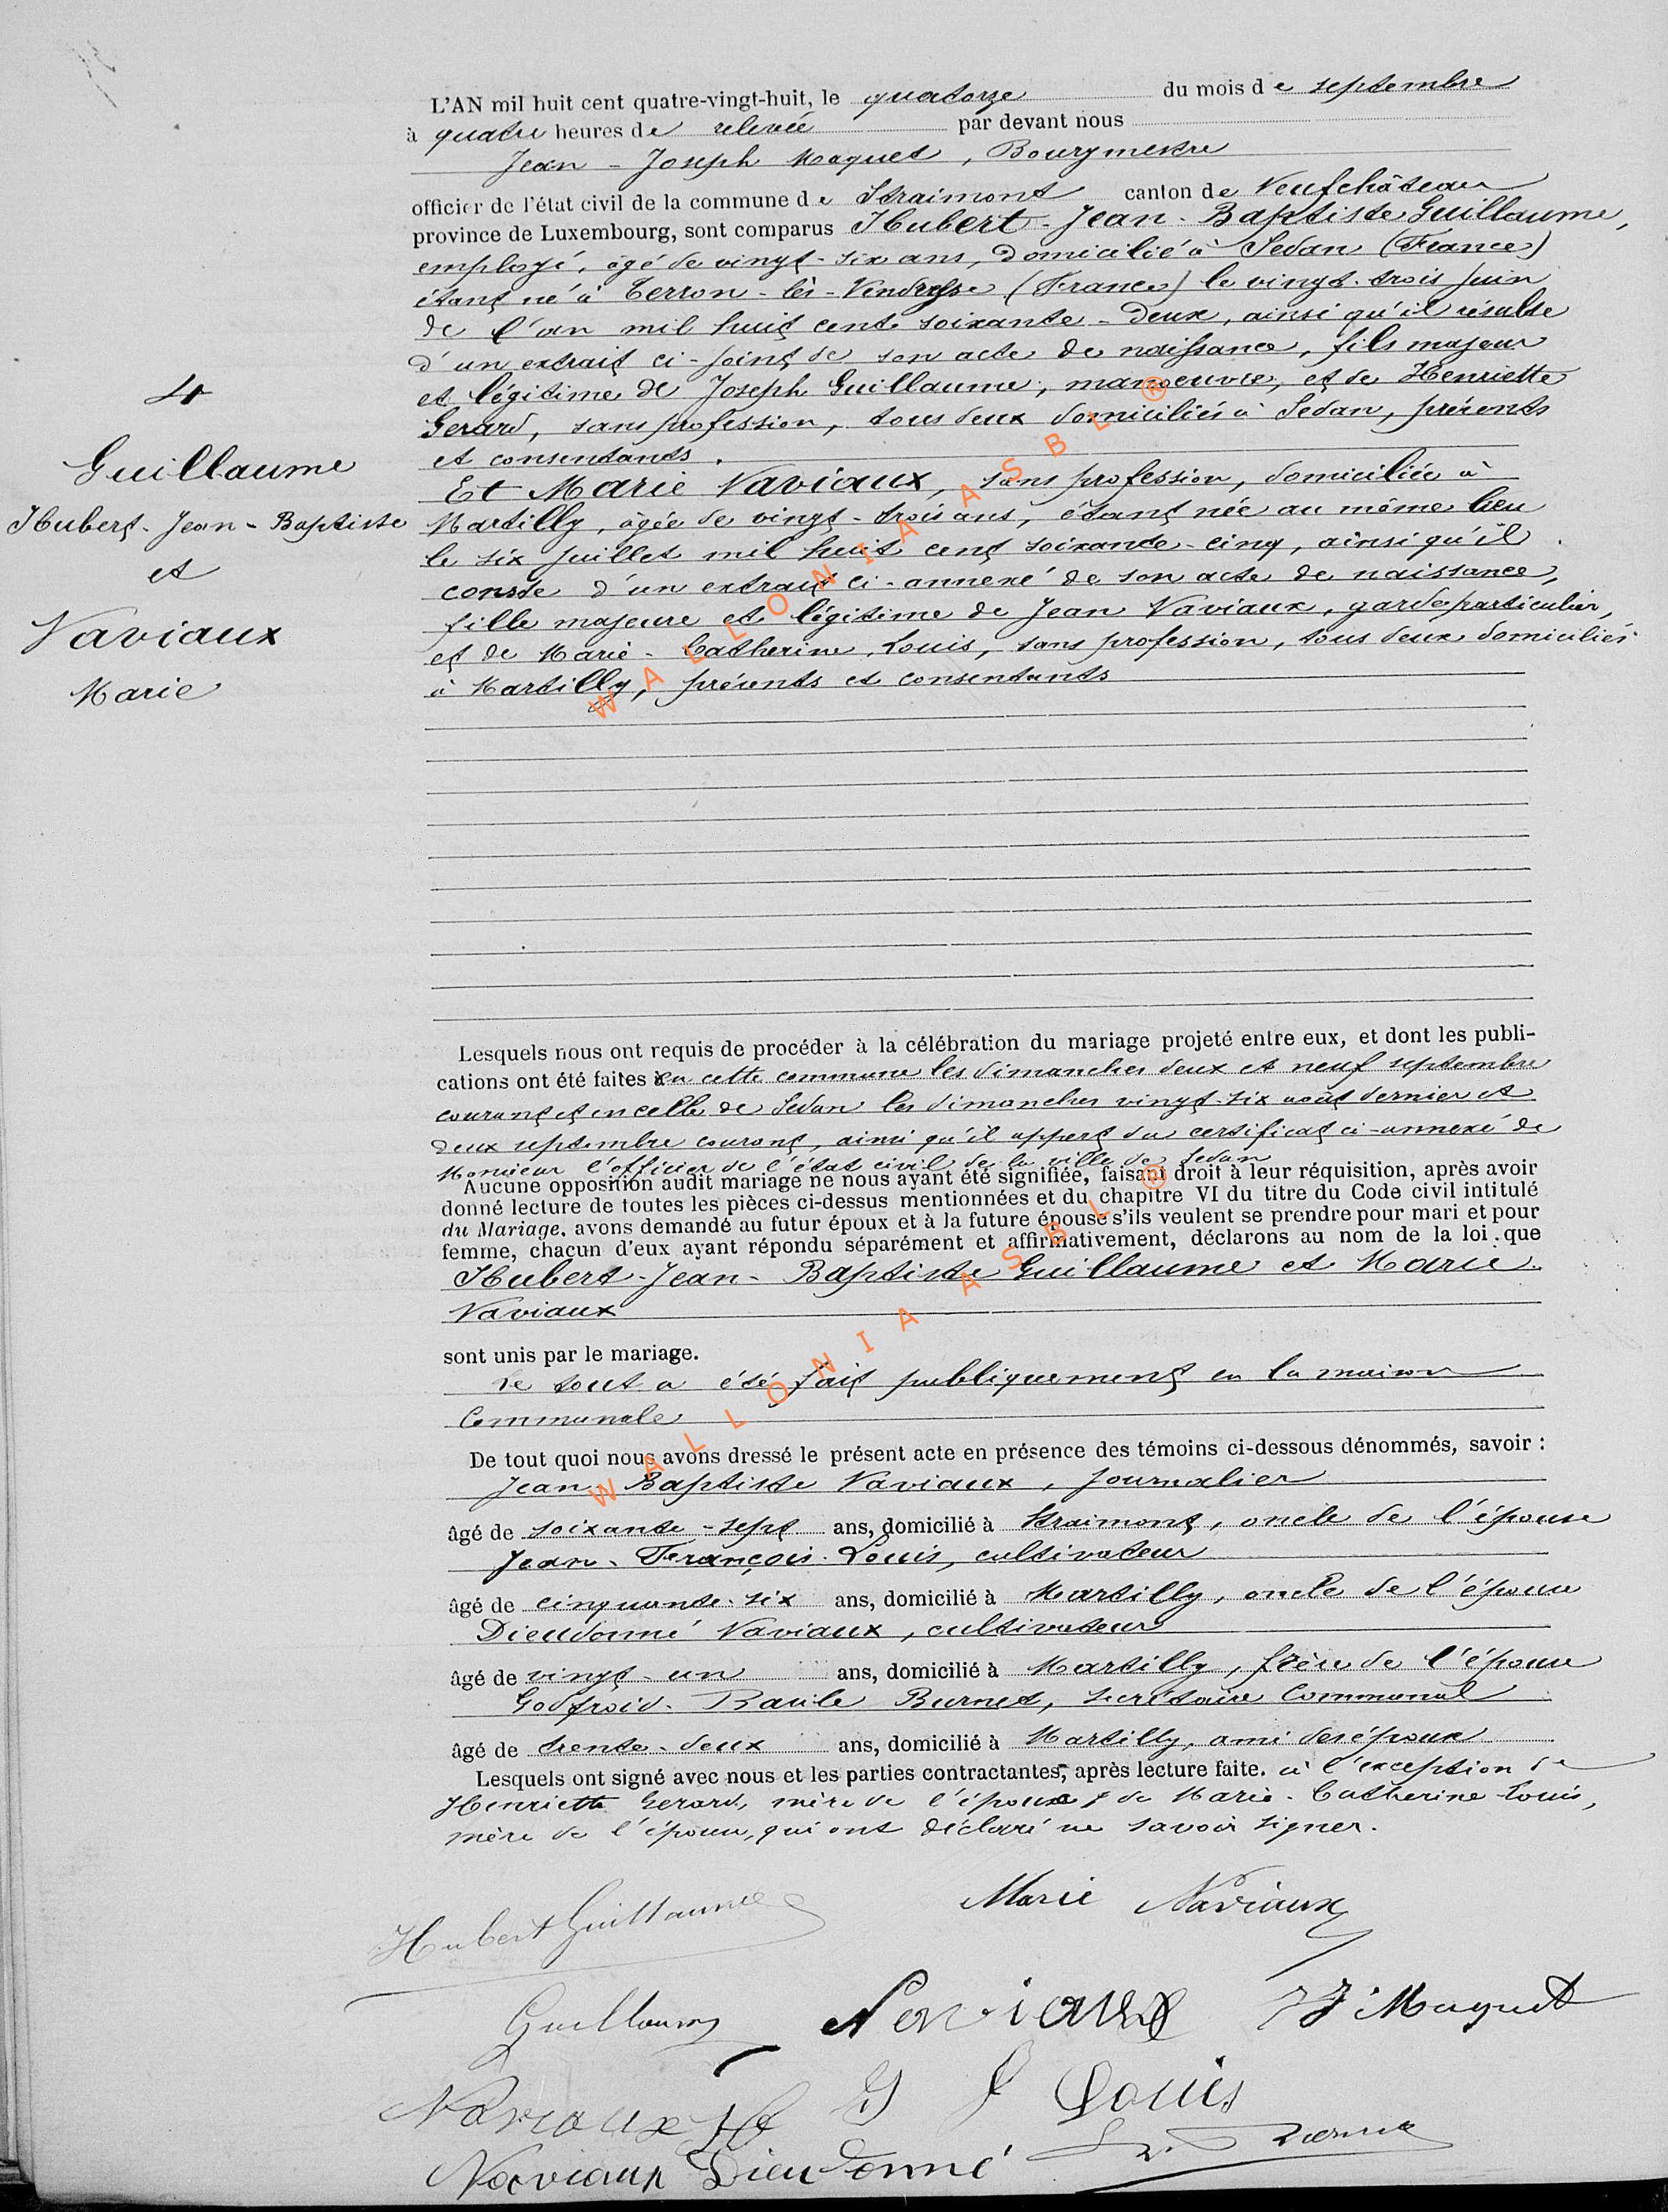 L'AN mil huit cent quatre-vingt-huit, le quatorze du mois de septembre
à quatre heures de relevée par devant nous
Jean-Joseph Maquet, Bourgmestre
officier de l'état civil de la commune de Straimont canton de Neufchâteau
province de Luxembourg, sont comparus Hubert-Jean-Baptiste Guillaume,
employé, âgé de vingt-six ans, domicilié à Sedan (France)
étant né à Terron-lès-Vendresse (France) le vingt-trois juin
de l'an mil huit cent soixante-deux, ainsi qu'il résulte
d'un extrait ci-joint de son acte de naissance, fils majeur
et légitime de Joseph Guillaume, manoeuvre, et de Henriette
Gerard, sans profession, tous deux domiciliés à Sedan, présents
et consentants.
Et Marie Naviaux, sans profession, domiciliée à
Martilly, âgée de vingt-trois ans, étant née au même lieu
le six juillet mil huit cent soixante-cinq, ainsi qu'il
conste d'un extrait ci-annexé de son acte de naissance,
fille majeure et légitime de Jean Naviaux, garde particulier,
et de Marie-Catherine Louis, sans profession, tous deux domiciliés
à Martilly, présents et consentants
4
Guillaume
Hubert-Jean-Baptiste
et
Naviaux
Marie
Lesquels nous ont requis de procéder à la célébration du mariage projeté entre eux, et dont les publi-
cations ont été faites en cette commune les dimanches deux et neuf septembre
courant et en celle de Sedan les dimanches vingt-six août dernier et
deux septembre courant, ainsi qu'il appert du certificat ci-annexé de
Monsieur l'officier de l'état civil de la ville de Sedan
Aucune opposition audit mariage ne nous ayant été signifiée, faisant droit à leur réquisition, après avoir
donné lecture de toutes les pièces ci-dessus mentionnées et du chapitre VI du titre du Code civil intitulé
du Mariage, avons demandé au futur époux et à la future épouse s'ils veulent se prendre pour mari et pour
femme, chacun d'eux ayant répondu séparément et affirmativement, déclarons au nom de la loi que
Hubert-Jean-Baptiste Guillaume et Marie
Naviaux
sont unis par le mariage.
Le tout a été fait publiquement en la maison
Communale
De tout quoi nous avons dressé le présent acte en présence des témoins ci-dessous dénommés, savoir :
Jean-Baptiste Naviaux, journalier
âgé de soixante-sept ans, domicilié à Straimont, oncle de l'épouse
Jean-François Louis, cultivateur
âgé de cinquante-six ans, domicilié à Martilly, oncle de l'épouse
Dieudonné Naviaux, cultivateur
âgé de vingt-un ans, domicilié à Martilly, frère de l'épouse
Godfroid Burnet, secrétaire Communal
âgé de trente-deux ans, domicilié à Martilly, ami des époux
Lesquels ont signé avec nous et les parties contractantes, après lecture faite. à l'exception de
Henriette Gerard, mère de l'époux & de Marie-Catherine Louis,
mère de l'épouse, qui ont déclaré ne savoir signer.
Hubert Guillaume
Marie Naviaux
Guillaume
Naviaux
JJ Maquet
Naviaux JB
J F Louis
Naviaux Dieudonné
WALLONIA ASBL ®
WALLONIA ASBL ®